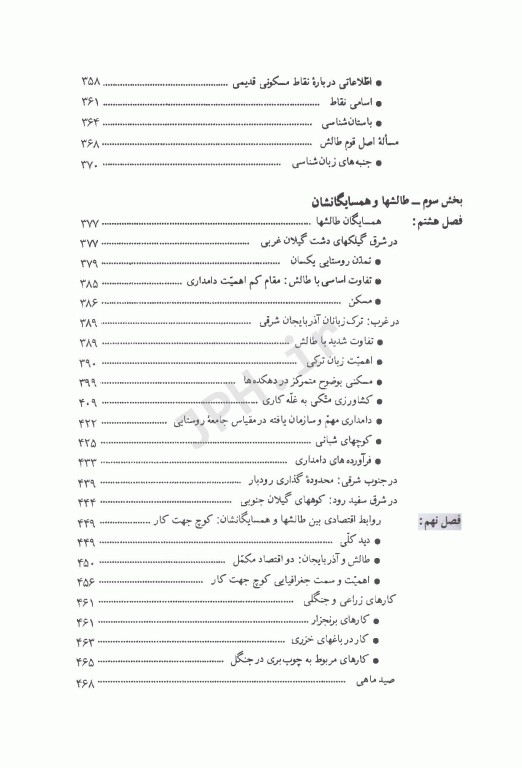 ● اطّلاعاتی دربارهٔ نقاط مسکونی قدیمی ........ ۳۵۸
● اسامی نقاط ........ ۳۶۱
● باستان‌شناسی ........ ۳۶۴
مسألهٔ اصل قوم طالش ........ ۳۶۸
● جنبه‌های زبان‌شناسی ........ ۳۷۰
بخش سوم ــ طالشها و همسایگانشان
فصل هشتم: همسایگان طالشها ........ ۳۷۷
در شرق گیلکهای دشت گیلان غربی ........ ۳۷۷
● تمدّن روستایی یکسان ........ ۳۷۹
● تفاوت اساسی با طالش: مقام کم اهمیّت دامداری ........ ۳۸۵
● مسکن ........ ۳۸۶
در غرب: ترک‌زبانان آذربایجان شرقی ........ ۳۸۹
● تفاوت شدید با طالش ........ ۳۸۹
● اهمیّت زبان ترکی ........ ۳۹۰
● مسکنی بوضوح متمرکز در دهکده‌ها ........ ۳۹۹
● کشاورزی متّکی به غلّه‌کاری ........ ۴۰۹
● دامداری مهمّ و سازمان یافته در مقیاس جامعهٔ روستایی ........ ۴۲۲
● کوچهای شبانی ........ ۴۲۵
● فرآورده‌های دامداری ........ ۴۳۳
در جنوب شرقی: محدودهٔ گذاری رودبار ........ ۴۳۹
در شرق سفید رود: کوههای گیلان جنوبی ........ ۴۴۴
فصل نهم: روابط اقتصادی بین طالشها و همسایگانشان: کوچ جهت کار ........ ۴۴۹
● دید کلّی ........ ۴۴۹
● طالش و آذربایجان: دو اقتصاد مکمّل ........ ۴۵۰
● اهمیّت و سمت جغرافیایی کوچ جهت کار ........ ۴۵۶
کارهای زراعی و جنگلی ........ ۴۶۱
● کارهای برنجزار ........ ۴۶۱
● کار در باغهای خزری ........ ۴۶۳
● کارهای مربوط به چوب‌بری در جنگل ........ ۴۶۵
صید ماهی ........ ۴۶۸
JPH.ir